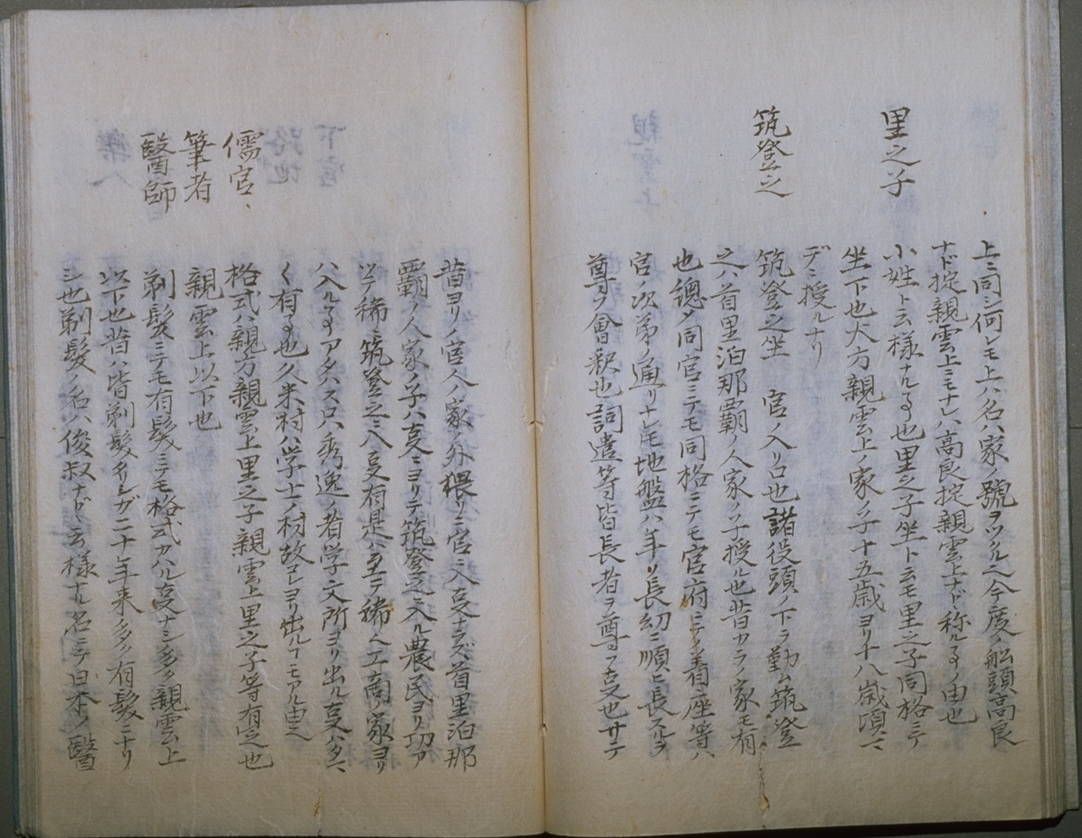 上ニ同シ何レモ上ハ名ハ家ノ號ヲツル今度ノ舩頭高良
ナド掟親雲上ニモナレハ高良掟親雲上ナド称ルヿノ由也
里之子
小姓ト云様ナルヿ也里之子坐ト云モ里之子同格ニテ
坐下也大方親雲上ノ家ノ子十五歳ヨリ十八歳頃
デニ授ルナリ
筑登之
筑登之坐 官ノ入リ口也諸役頭ノ下ヲ勤ム筑登
之ハ首里泊那覇ノ人家ノ子授ル也昔カラノ家モ有
也總タ同官ニテモ同格ニテモ官府ニテノ着座等ハ
官ノ次第ノ通リナレモ地盤ハ年リ長幼ニ順ヒ長スルヲ
尊フ會釈也詞遣等皆長者ヲ尊フ支也サテ
昔ヨリノ官人ノ家ノ外猥リニ官ニ入支ナラズ首里泊那
覇ノ人家ノ子ハ支ニヨリテ筑登之ニ入ル農民ヨリ功ヲ
以テ稀ニ筑登之ニ入支有是ハ稀ヘ工商ノ家ヨリ
ハ入ルヿアタハス只秀逸ノ者学文所ヨリ出ル支
ク有ヿ也久米村ハ学士ノ村故ヨリ出ルヿモアル由
儒官、
格式ハ親方親雲上里之子親雲上里之子等有之也
筆者
親雲上以下也
醫師
剃髪ニテモ有髪ニテモ格式カハル支ナシ多ク親雲上
以下也昔ハ皆剃髪ナリシガ二十年来多ク有髪ニナリ
シ也剃髪ノ名ハ俊叔ナド云様ナル名ニテ日本ノ醫